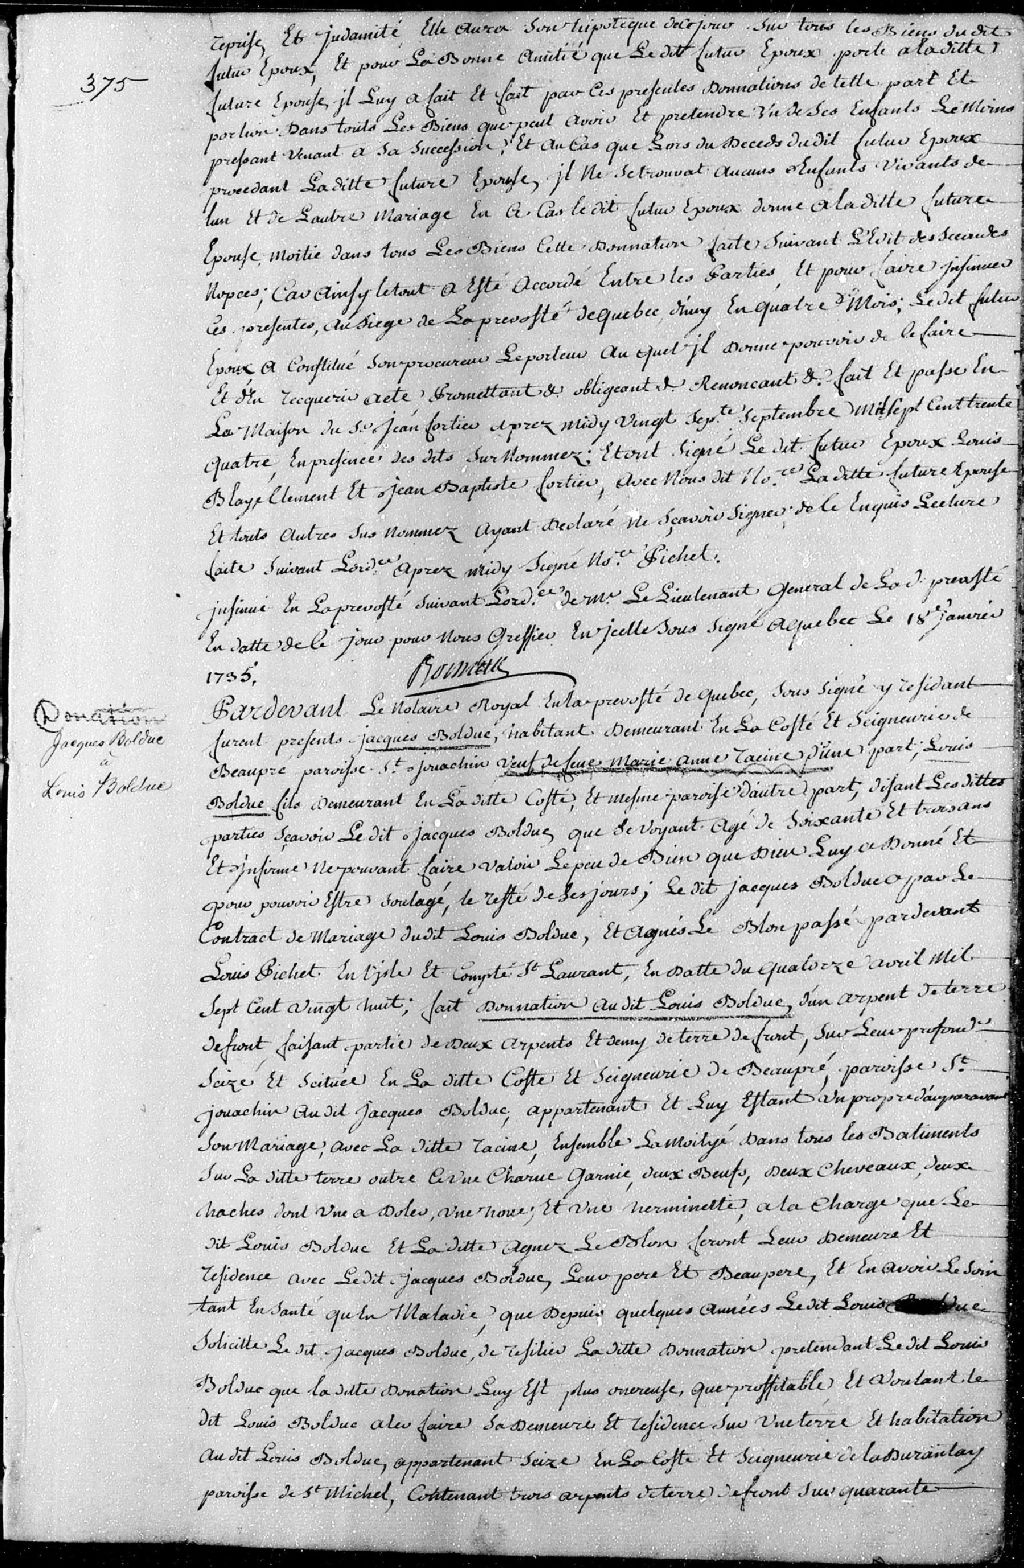 reprise, Et Judamité Elle Aura Son hipoteque de ce jour Sur tous les Biens du dit
futur Epoux, Et pour La Bonne Amitié que Le dit futur Epoux porte a la ditte
375
future Epouse, jl Luy a fait Et fait par Ces presentes Donnations de telle part Et
portion Dans touts Les Biens que peut Avoir Et pretendre Un de Ses Enfants Le Moins
pressant Venant a Sa Succession; Et Au Cas que Lors du Deceds du dit futur Epoux
precedant La ditte future Epouse, jl Ne Se trouvat Aucuns Enfants Vivants de
lun Et de Lautre Mariage En Ce Cas le dit futur Epoux donne a la ditte future
Epouse, Moitié dans tous Les Biens Cette Donnation faite Suivant L'Edit des Secondes
Nopces; Car Ainsy le tout a Esté Accordé Entre les Parties Et pour faire jnsinuer
Ces presentes, Au Siege de La prevosté de quebec, d'icy En quatre Mois; Le dit futur
Epoux A Constitué Son procureur Le porteur Au quel jl Donne pouvoir de Ce faire
Et d'En Recquerir Acte Promettant & obligeant & Renoncant &.a fait Et passé En
La Maison du Sr Jean fortier Aprez Midy Vingt Sep.te Septembre Mil Sept Cent trente
quatre, En presence des dits Surnommez; Et ont Signé Le dit futur Epoux Louis
Blay, Clement Et Jean Baptiste fortier, Avec Nous dit No.re La ditte future Epouse
Et touts Autres Sus Nommez Ayant Declaré Ne Sçavoir Signer de Ce Enquis Lecture
faite Suivant Lord.ce Aprez Midy Signé No.re Pichet.
jnsinué En La prevosté Suivant Lord.ce de Mr Le Lieutenant General de La d. prevosté
En datte de Ce jour pour Nous Greffier En jcelle Sous Signé A quebec Le 18e Janvier
1735.
Boisseau
Donation
Jacques Bolduc
a
Louis Bolduc
Pardevant Le Notaire Royal En la prevosté de quebec, Sous Signé y residant
furent presents Jacques Bolduc, habitant Demeurant En La Coste Et Seigneurie de
Beaupré paroisse St Jouachin Veuf de feue Marie Anne Racine d'une part; Louis
Bolduc fils Demeurant En La ditte Coste, Et mesme paroisse d'autre part, disant Les dittes
parties Sçavoir Le dit Jacques Bolduc, que Se Voyant Agé de Soixante Et trois ans
Et jnfirme Ne pouvant faire Valoir Le peu de Bien que Dieu Luy a Donné Et
pour pouvoir Estre Soulagé, le resté de Ses jours; Le dit Jacques Bolduc a par Le
Contract de Mariage du dit Louis Bolduc, Et Agnés Le Blon passé pardevant
Louis Pichet En L'jsle Et Compté St Laurant, En Datte du quatorze Avril Mil
Sept Cent Vingt huit; fait Donnation Au dit Louis Bolduc, d'un arpent de terre
de front faisant partie de Deux Arpents Et demy de terre de front, Sur Leur profond.r
Seize Et Scituée En La ditte Coste Et Seigneurie de Beaupré, paroisse St
jouachin Au dit Jacques Bolduc, appartenant Et Luy Estant Un propre d'auparavant
Son Mariage, Avec La ditte Racine, Ensemble La Moityé Dans tous les Batiments
Sur La ditte terre outre Ce Une Charue Garnie, deux Beufs, Deux Cheveaux, deux
haches dont Une a Doler, Une houe, Et Une herminette, a la Charge que Le
dit Louis Bolduc Et La ditte Agnez Le Blon feront Leur Demeure Et
residence avec Le dit Jacques Bolduc, Leur pere Et Beaupere, Et En Avoir Le Soin
tant En Santé qu'En Maladie, que Depuis quelques Années Le dit Louis Bolduc
Solicitte Le dit Jacques Bolduc, de resilier La ditte Donnation pretendant Le dit Louis
Bolduc que la ditte Donation Luy Est plus onereuse, que proffitable Et Voulant le
dit Louis Bolduc aler faire Sa Demeure Et residence Sur Une terre Et habitation
Au dit Louis Bolduc, appartenant Seize En La Coste Et Seigneurie de la Durantay
paroisse de St Michel, Contenant trois arpents de terre de front Sur quarante